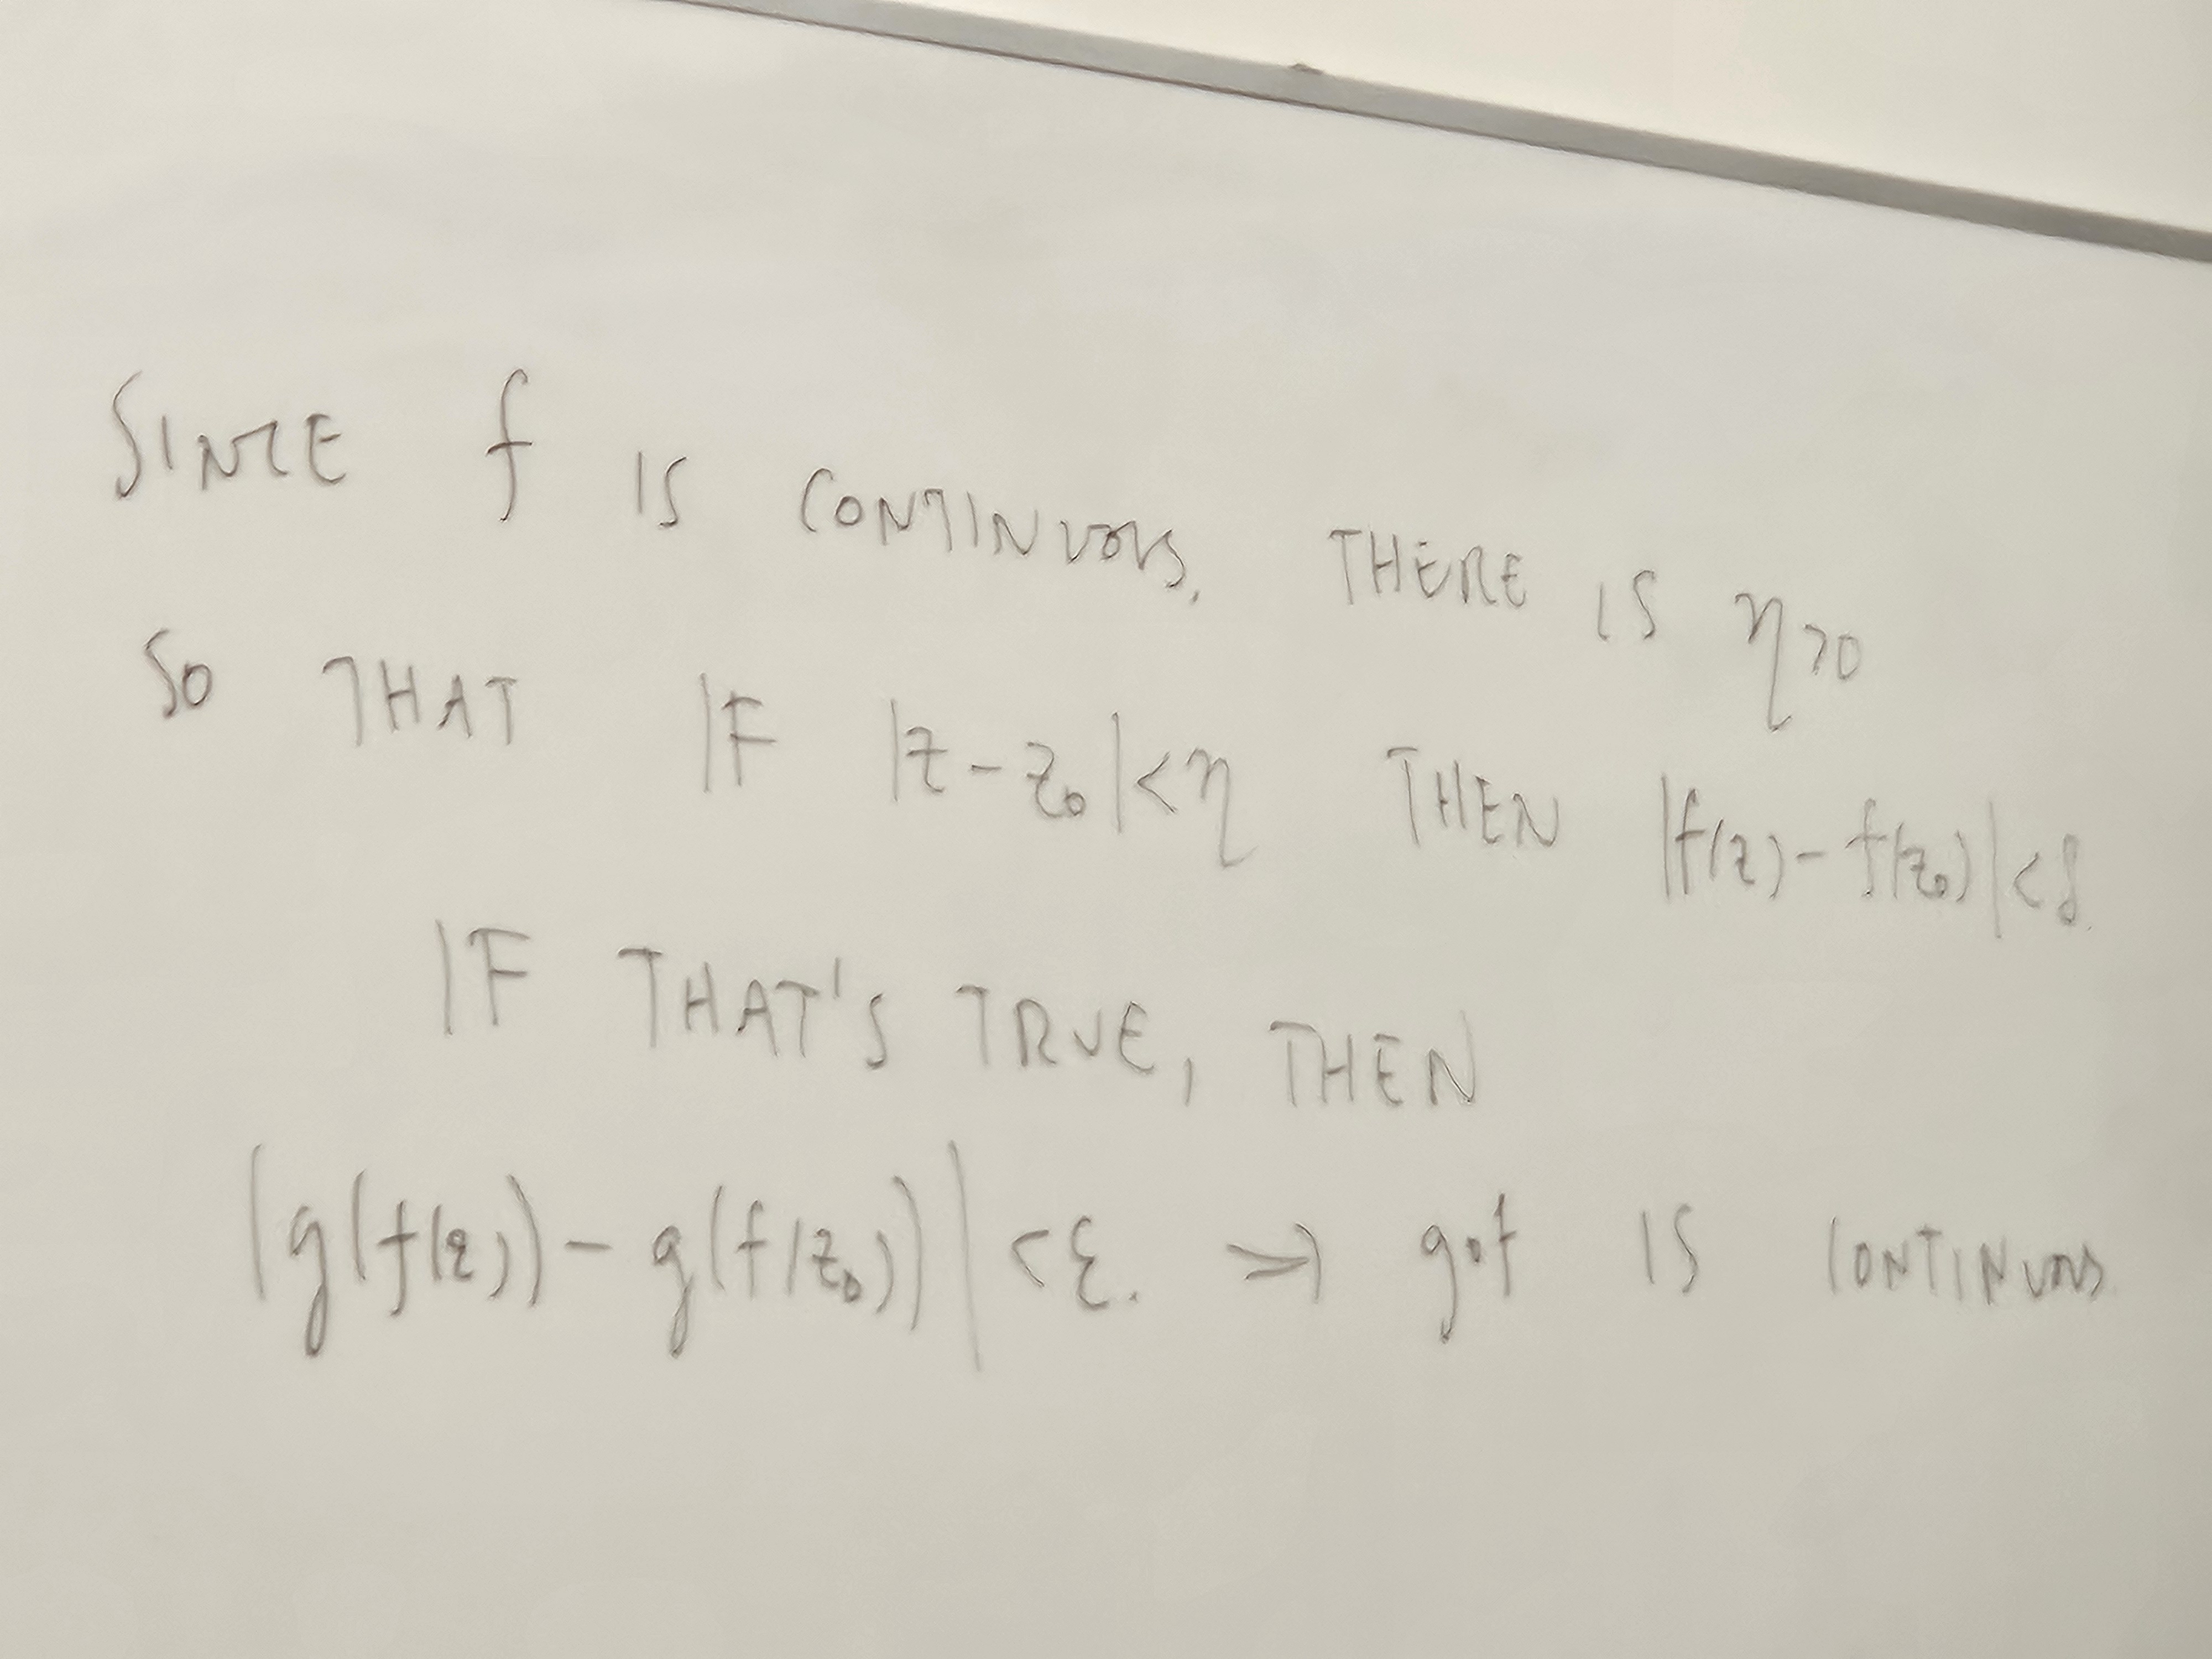 SINCE f IS CONTINUOUS, THERE IS η>0
SO THAT IF |z-z₀|<η THEN |f(z)-f(z₀)|<δ.
IF THAT'S TRUE, THEN
|g(f(z))-g(f(z₀))|<ε. ⇒ g∘f IS CONTINUOUS